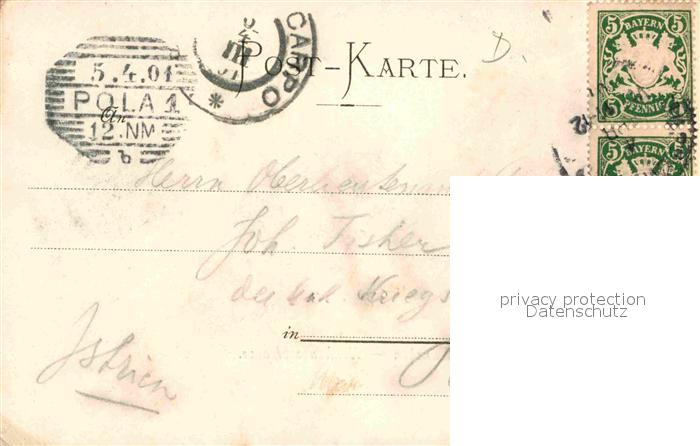 POST-KARTE.
D.
CARPO
5.4.01
POLA 1
12.NM
b
An
5 BAYERN 5
5 PFENNIG 5
5 BAYERN 5
Herrn
Joh. Fisher
der k.u.k. Kriegs
in
Istrien
privacy protection
Datenschutz